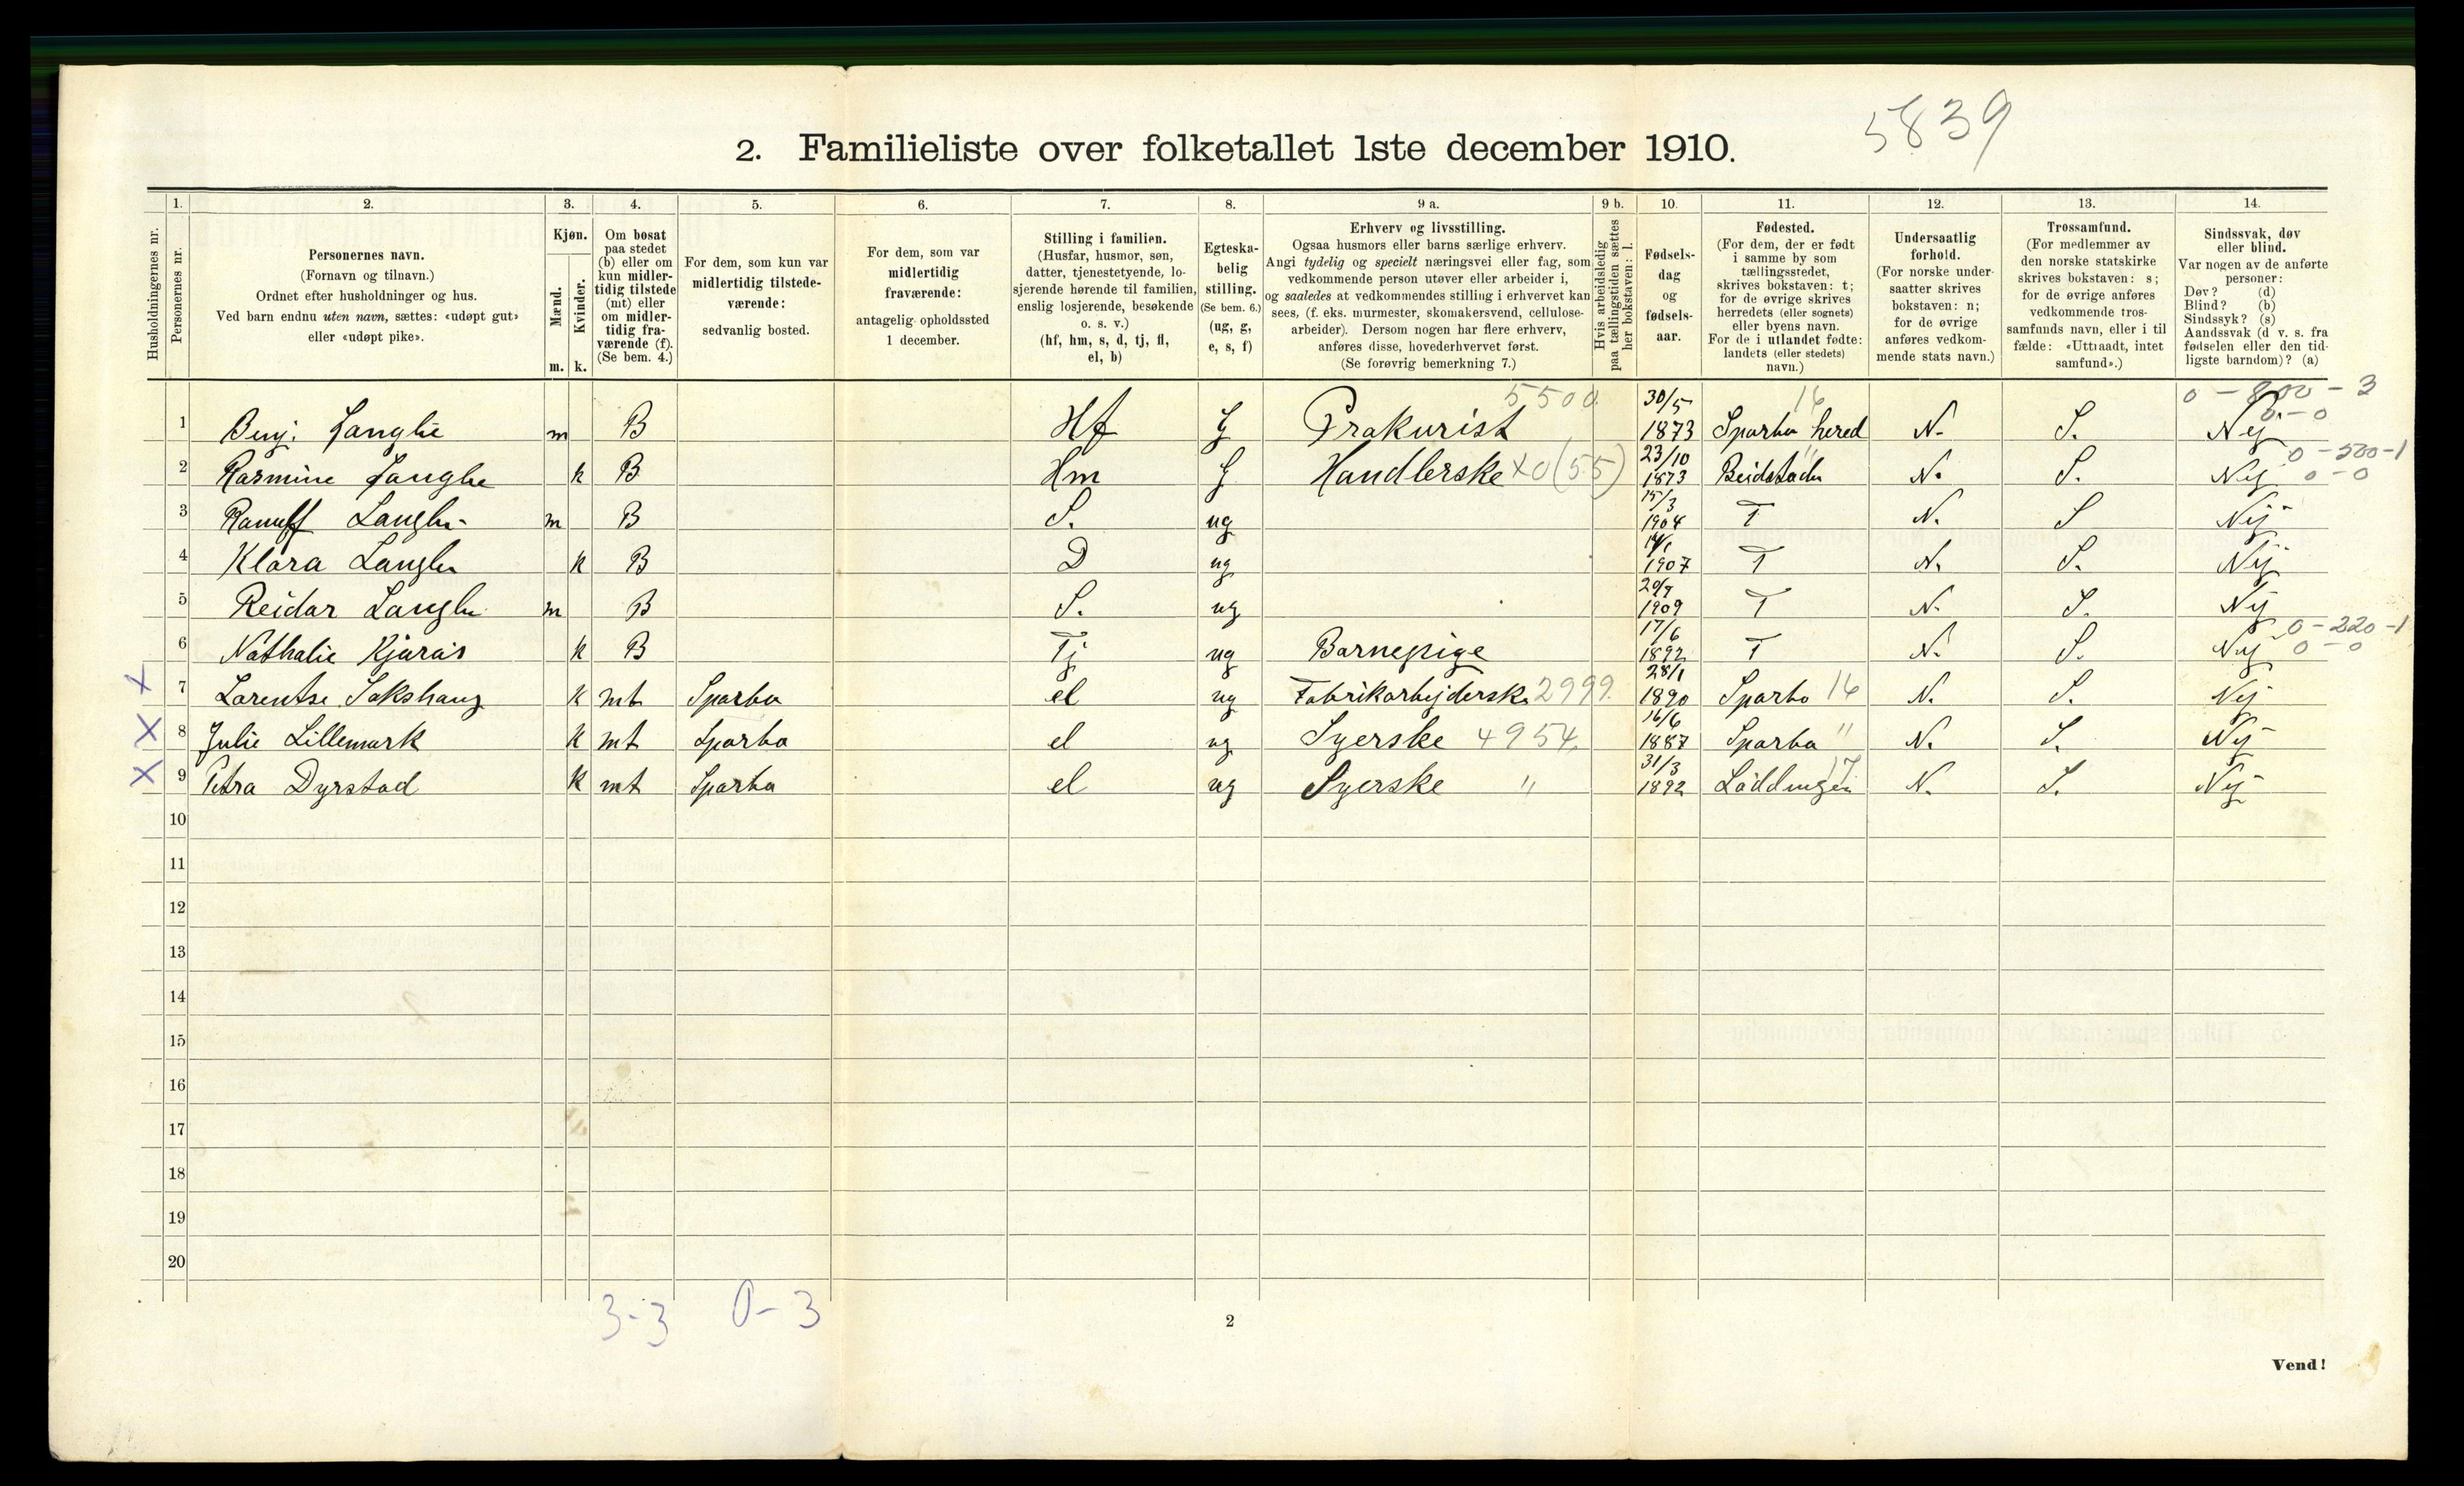 5839
2. Familieliste over folketallet 1ste december 1910.
Husholdningernes nr.
1. Personernes nr.
2. Personernes navn.
(Fornavn og tilnavn.)
Ordnet efter husholdninger og hus.
Ved barn endnu uten navn, sættes: «udøpt gut»
eller «udøpt pike».
3. Kjøn.
Mænd. Kvinder.
m. k.
4. Om bosat
paa stedet
(b) eller om
kun midler-
tidig tilstede
(mt) eller
om midler-
tidig fra-
værende (f).
(Se bem. 4.)
5. For dem, som kun var
midlertidig tilstede-
værende:
sedvanlig bosted.
6. For dem, som var
midlertidig
fraværende:
antagelig opholdssted
1 december.
7. Stilling i familien.
(Husfar, husmor, søn,
datter, tjenestetyende, lo-
sjerende hørende til familien,
enslig losjerende, besøkende
o. s. v.)
(hf, hm, s, d, tj, fl,
el, b)
8. Egteska-
belig
stilling.
(Se bem. 6.)
(ug, g,
e, s, f)
9 a. Erhverv og livsstilling.
Ogsaa husmors eller barns særlige erhverv.
Angi tydelig og specielt næringsvei eller fag, som
vedkommende person utøver eller arbeider i,
og saaledes at vedkommendes stilling i erhvervet kan
sees, (f. eks. murmester, skomakersvend, cellulose-
arbeider). Dersom nogen har flere erhverv,
anføres disse, hovederhvervet først.
(Se forøvrig bemerkning 7.)
9 b. Hvis arbeidsledig
paa tællingstiden sættes
her bokstaven: l.
10. Fødsels-
dag
og
fødsels-
aar.
11. Fødested.
(For dem, der er født
i samme by som
tællingsstedet,
skrives bokstaven: t;
for de øvrige skrives
herredets (eller sognets)
eller byens navn.
For de i utlandet fødte:
landets (eller stedets)
navn.)
12. Undersaatlig
forhold.
(For norske under-
saatter skrives
bokstaven: n;
for de øvrige
anføres vedkom-
mende stats navn.)
13. Trossamfund.
(For medlemmer av
den norske statskirke
skrives bokstaven: s;
for de øvrige anføres
vedkommende tros-
samfunds navn, eller i til
fælde: «Uttraadt, intet
samfund».)
14. Sindssvak, døv
eller blind.
Var nogen av de anførte
personer:
Døv? (d)
Blind? (b)
Sindssyk? (s)
Aandssvak (d v. s. fra
fødselen eller den tid-
ligste barndom)? (a)
5500 30/5 16 0 - 800 - 3
0 - 0
1 Benj. Langlie m B Hf G Prokurist 1873 Sparbo hered N. S. Nej
23/10 0 - 500 - 1
2 Rasmine Langlie k B Hm G Handlerske x0 (55) 1873 Beidstaden " N. S. Nej 0 - 0
15/3
3 Langlie m B S. ug 1904 T N. S Nej
4 Klara Langlie k B D ug 1907 T N. S. Nej
5 Reidar Langlie m B S. ug 1909 T N. S. Nej
17/6 0 - 220 - 1
6 Nathalie k B Tj ug Barnepige 1892 T N. S. Nej 0 - 0
28/1
X 7 Lorentse Sakshaug k mt Sparbo el ug Fabrikarbejderske 2999 1890 Sparbo 16 N. S. Nej
16/6
X 8 Julie Lillemark k mt Sparbo el ug Syerske 4954 1887 Sparbo " N. S. Nej
31/3 17
X 9 Petra Dyrstad k mt Sparbo el ug Syerske " 1892 Löddingen N. S. Nej
10
11
12
13
14
15
16
17
18
19
20
3-3 0-3
2
Vend!